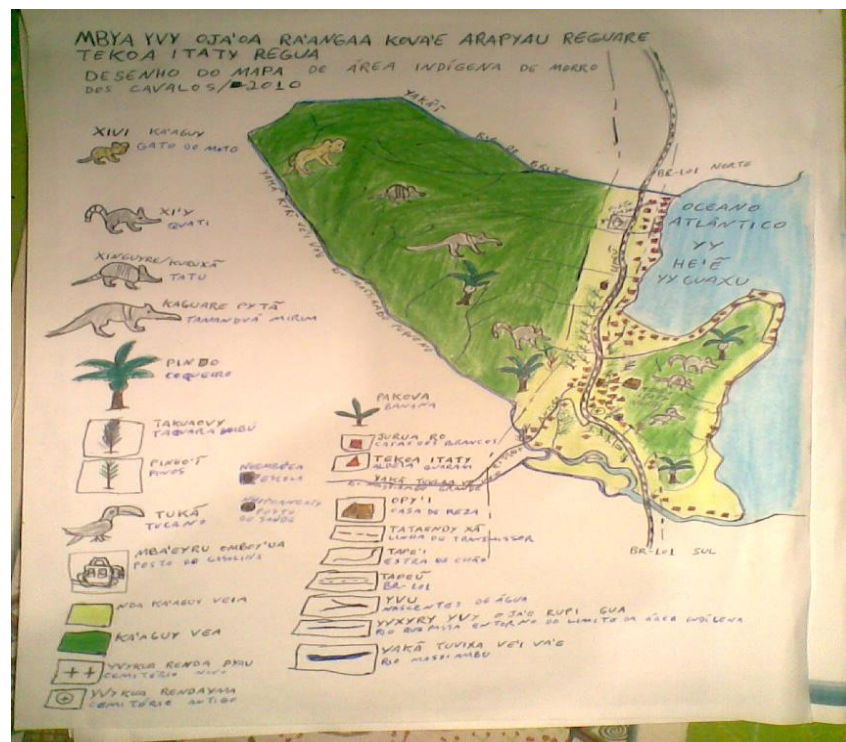 MBYA YVY OJA'OA RA'ANGAA KOVA'E ARAPYAU REGUARE
TEKOA ITATY REGUA
DESENHO DO MAPA DE ÁREA INDÍGENA DE MORRO
DOS CAVALOS/2010
XIVI KA'AGUY
GATO DO MATO
XI'Y
QUATI
XINGUYRE/KURUXÃ
TATU
KAGUARE PYTÃ
TAMANDUÁ MIRIM
PINDO
COQUEIRO
TAKUAOVY
TAQUARA
PINHO'I
PINOS
ESCOLA
POSTO
DE SAÚDE
TUKÃ
TUCANO
MBA'EYRU OMBOY'UA
POSTO DE GASOLINA
NDA KA'AGUY VEIA
KA'AGUY VEA
YVYKUA RENDA PYAU
CEMITÉRIO NOVO
YVYKUA RENDAYMA
CEMITÉRIO ANTIGO
PAKOVA
BANANA
JURUA RO
CASAS DOS BRANCOS
TEKOA ITATY
ALDEIA GUARANI
OPY'I
CASA DE REZA
TATAENDY XÃ
LINHA DE TRANSMISSOR
TAPE'I
ESTRA DE CHÃO
BR-101
YVU
NASCENTES DE ÁGUA
YVXYRY YVY OJA'E RUPI GUA
RIO QUE PASSA ENTORNO DA LIMITE DA ÁREA INDÍGENA
YAKÃ TUVIXA VE'I VA'E
RIO MASSIAMBU
RIO DO BRITO
BR-101 NORTE
OCEANO
ATLÂNTICO
YY
HE'Ẽ
YY GUAXU
BR-101 SUL